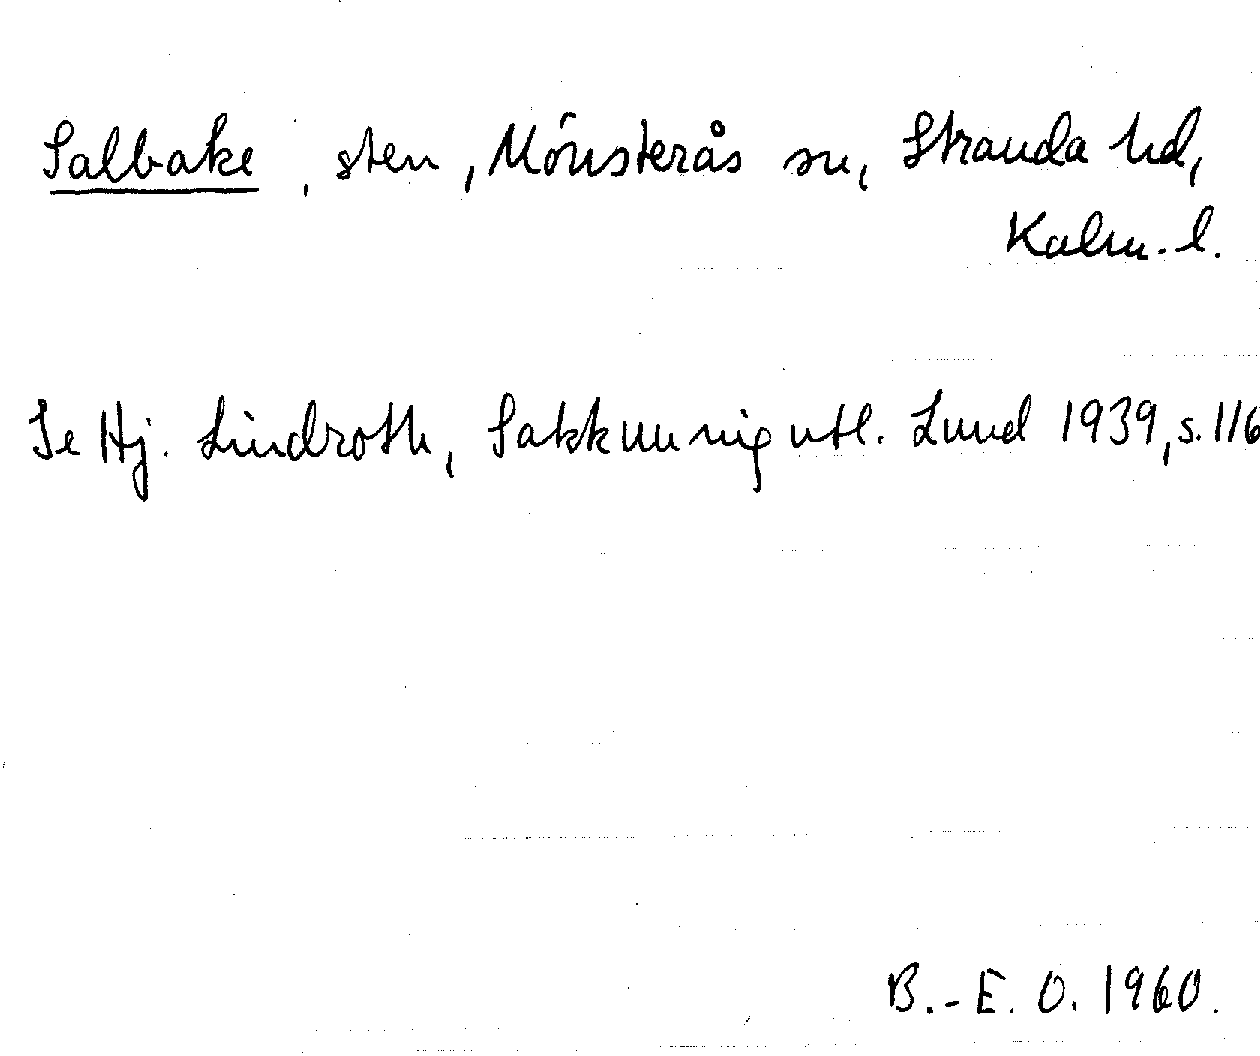 Salbake, sten, Mönsterås sn, Stranda hd,
Kalm. l.
Se Hj. Lindroth, Sakkunnigutl. Lund 1939, s. 116
B.-E. O. 1960.